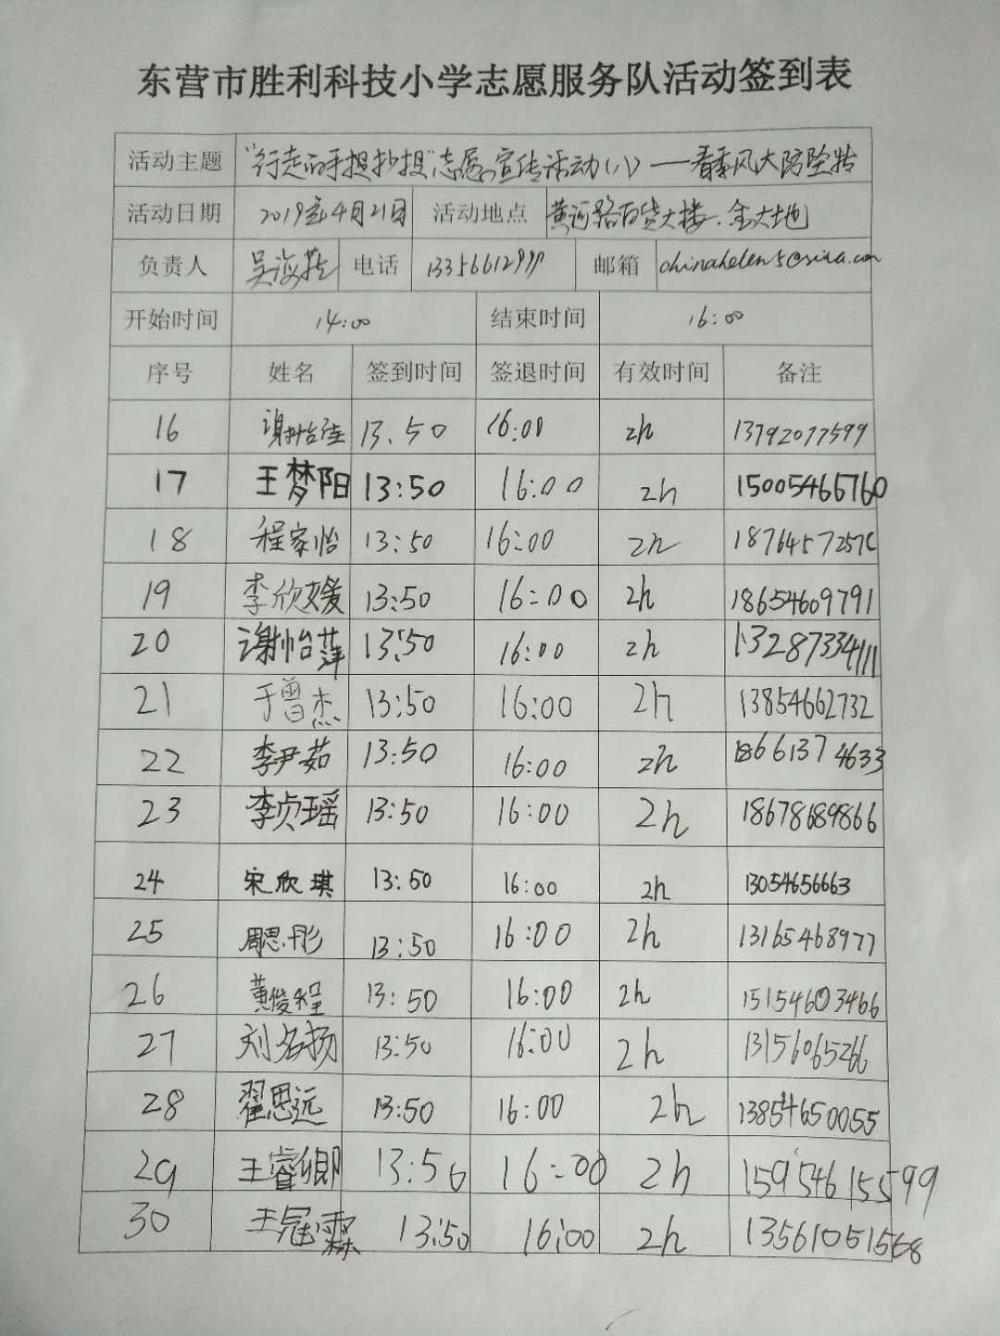 东营市胜利科技小学志愿服务队活动签到表
活动主题 "行走的手提抄报"志愿宣传活动(八)——春季风大防坠物
活动日期 2019年4月21日 活动地点 黄河路百货大楼、金大地
负责人 吴海燕 电话 邮箱 chinahelen5@sina.com
开始时间 14:00 结束时间 16:00
序号 姓名 签到时间 签退时间 有效时间 备注
16 13.50 16:00 2h 13792077599
17 王梦阳 13:50 16:00 2h 15005466760
18 程家怡 13:50 16:00 2h
19 李欣媛 13:50 16:00 2h 18654609791
20 谢怡萍 13:50 16:00 2h 13287334111
21 于曾杰 13:50 16:00 2h 13854662732
22 李尹茹 13:50 16:00 2h 18661374633
23 李贞瑶 13:50 16:00 2h 18678689866
24 宋欣琪 13:50 16:00 2h 13054656663
25 周思彤 13:50 16:00 2h 13165468977
26 黄俊程 13:50 16:00 2h 15154603466
27 刘名扬 13:50 16:00 2h 13156065266
28 翟思远 13:50 16:00 2h 13854650055
29 王睿卿 13:50 16:00 2h 15954615599
30 王冠霖 13:50 16:00 2h 13561051568